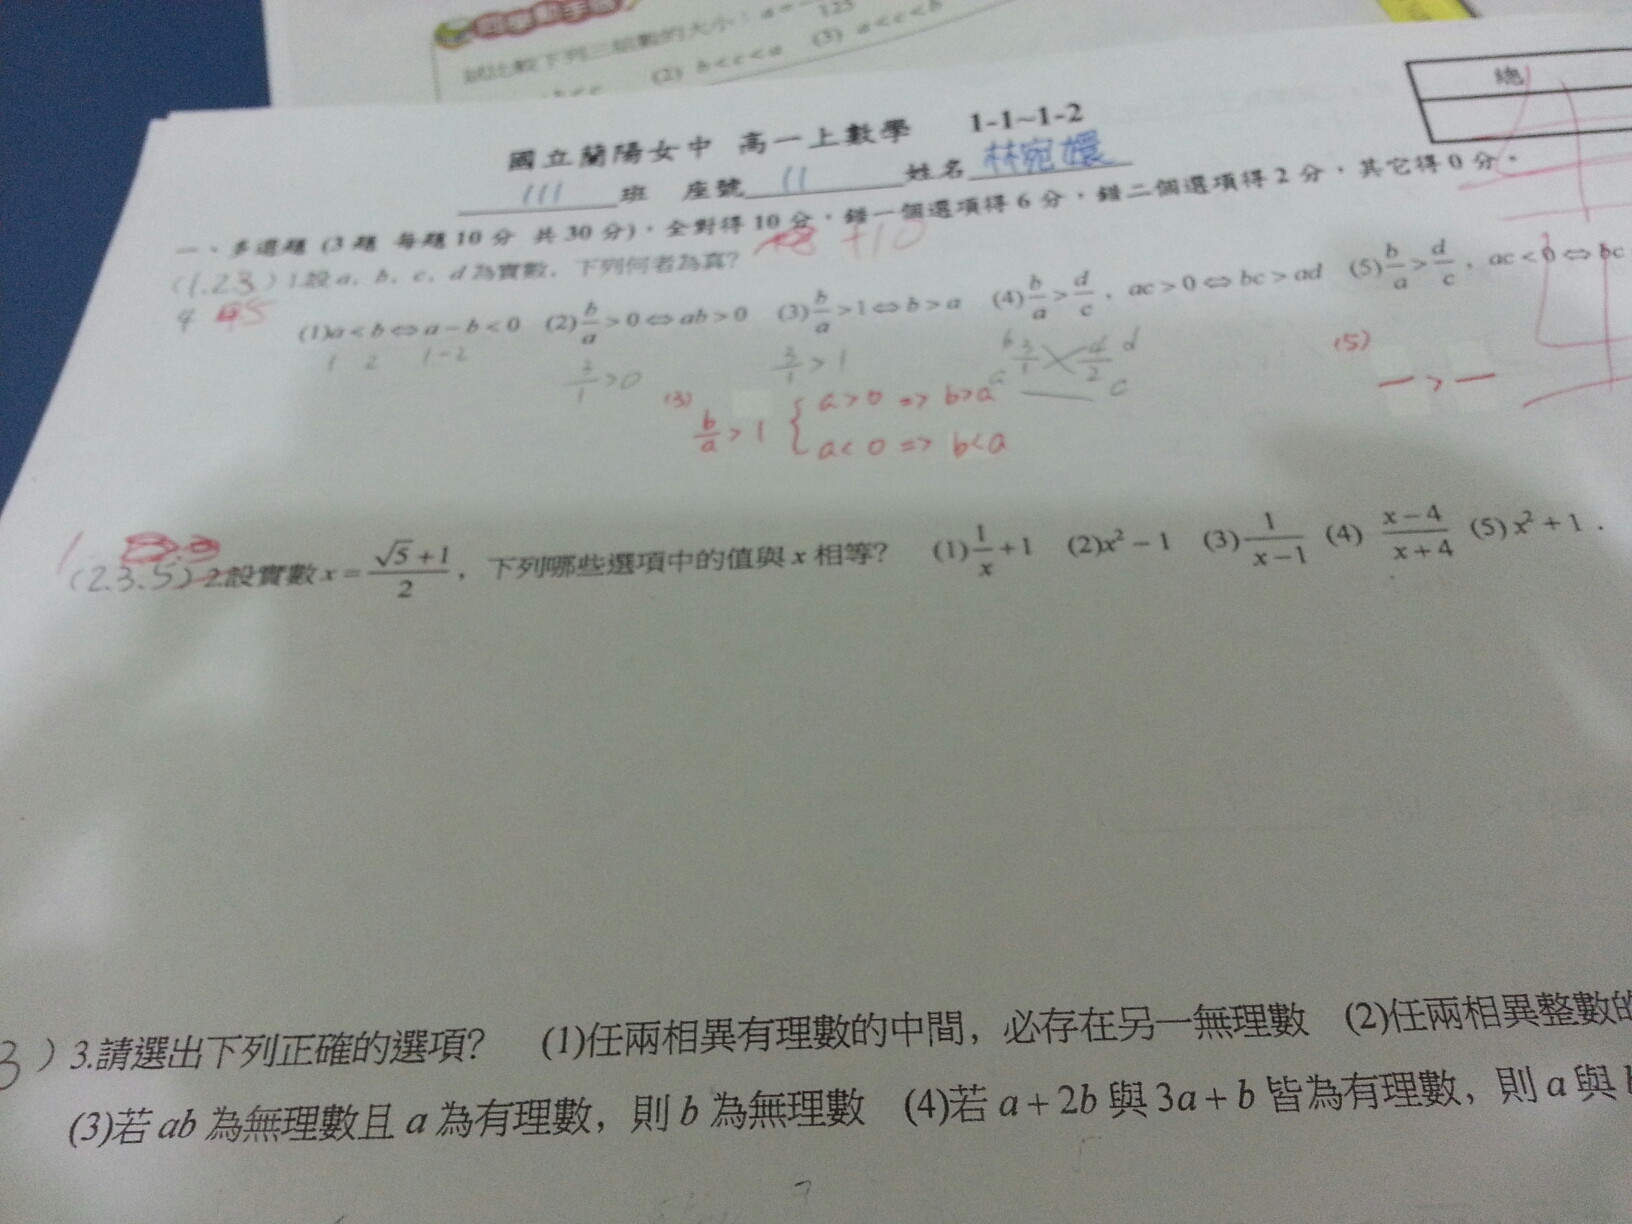 動手
試比較下列三組數的大小：a=
125
(2) b<c<a (3) a<c<b
總
國立蘭陽女中 高一上數學 1-1~1-2
111 班 座號 11 姓名 林宛嬛
一、多選題 (3題 每題10分 共30分)，全對得10分，錯一個選項得6分，錯二個選項得2分，其它得0分。
+10
(1.2.3) 1.設a，b，c，d為實數，下列何者為真?
4 5
(1)a<b⇔a-b<0 (2)b/a>0⇔ab>0 (3)b/a>1⇔b>a (4)b/a>d/c，ac>0⇔bc>ad (5)b/a>d/c，ac<0⇔bc
1 2 1-2
3/1>0
3/1>1
b 3/1 d/2 d
a c
(3) b/a>1 { a>0 => b>a
a<0 => b<a
(5)
— > —
(2.3.5) 2.設實數x=(√5+1)/2，下列哪些選項中的值與x相等? (1)1/x+1 (2)x²-1 (3)1/(x-1) (4) (x-4)/(x+4) (5)x²+1.
3) 3.請選出下列正確的選項? (1)任兩相異有理數的中間，必存在另一無理數 (2)任兩相異整數的
(3)若ab為無理數且a為有理數，則b為無理數 (4)若a+2b與3a+b皆為有理數，則a與